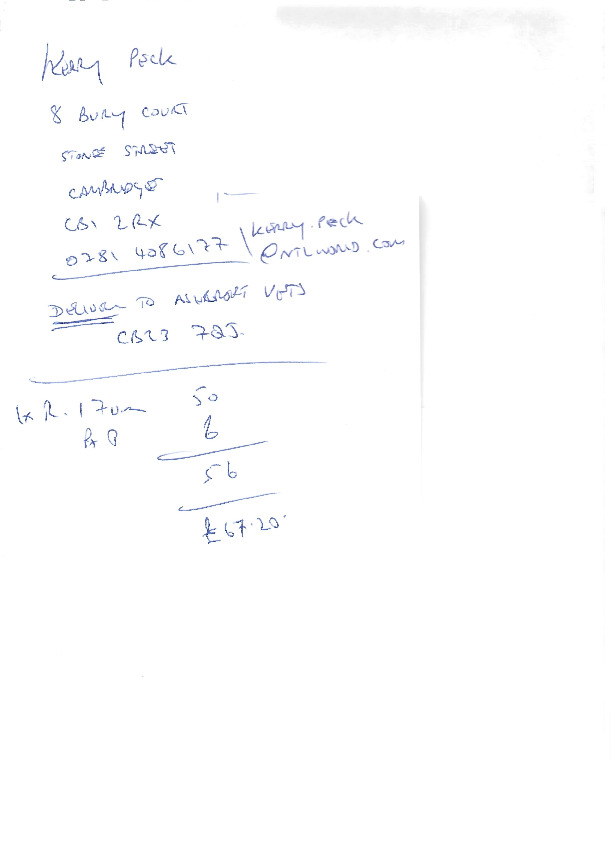 Kerry Peck
8 BURY COURT
STONE STREET
CAMBRIDGE
CB1 2RX
0781 4086177 \ KERRY.PECK
@NTLWORLD.COM
DELIVER TO VETS
CB23 7QJ.
1x R. 17um 50
P+P 6
56
£67.20